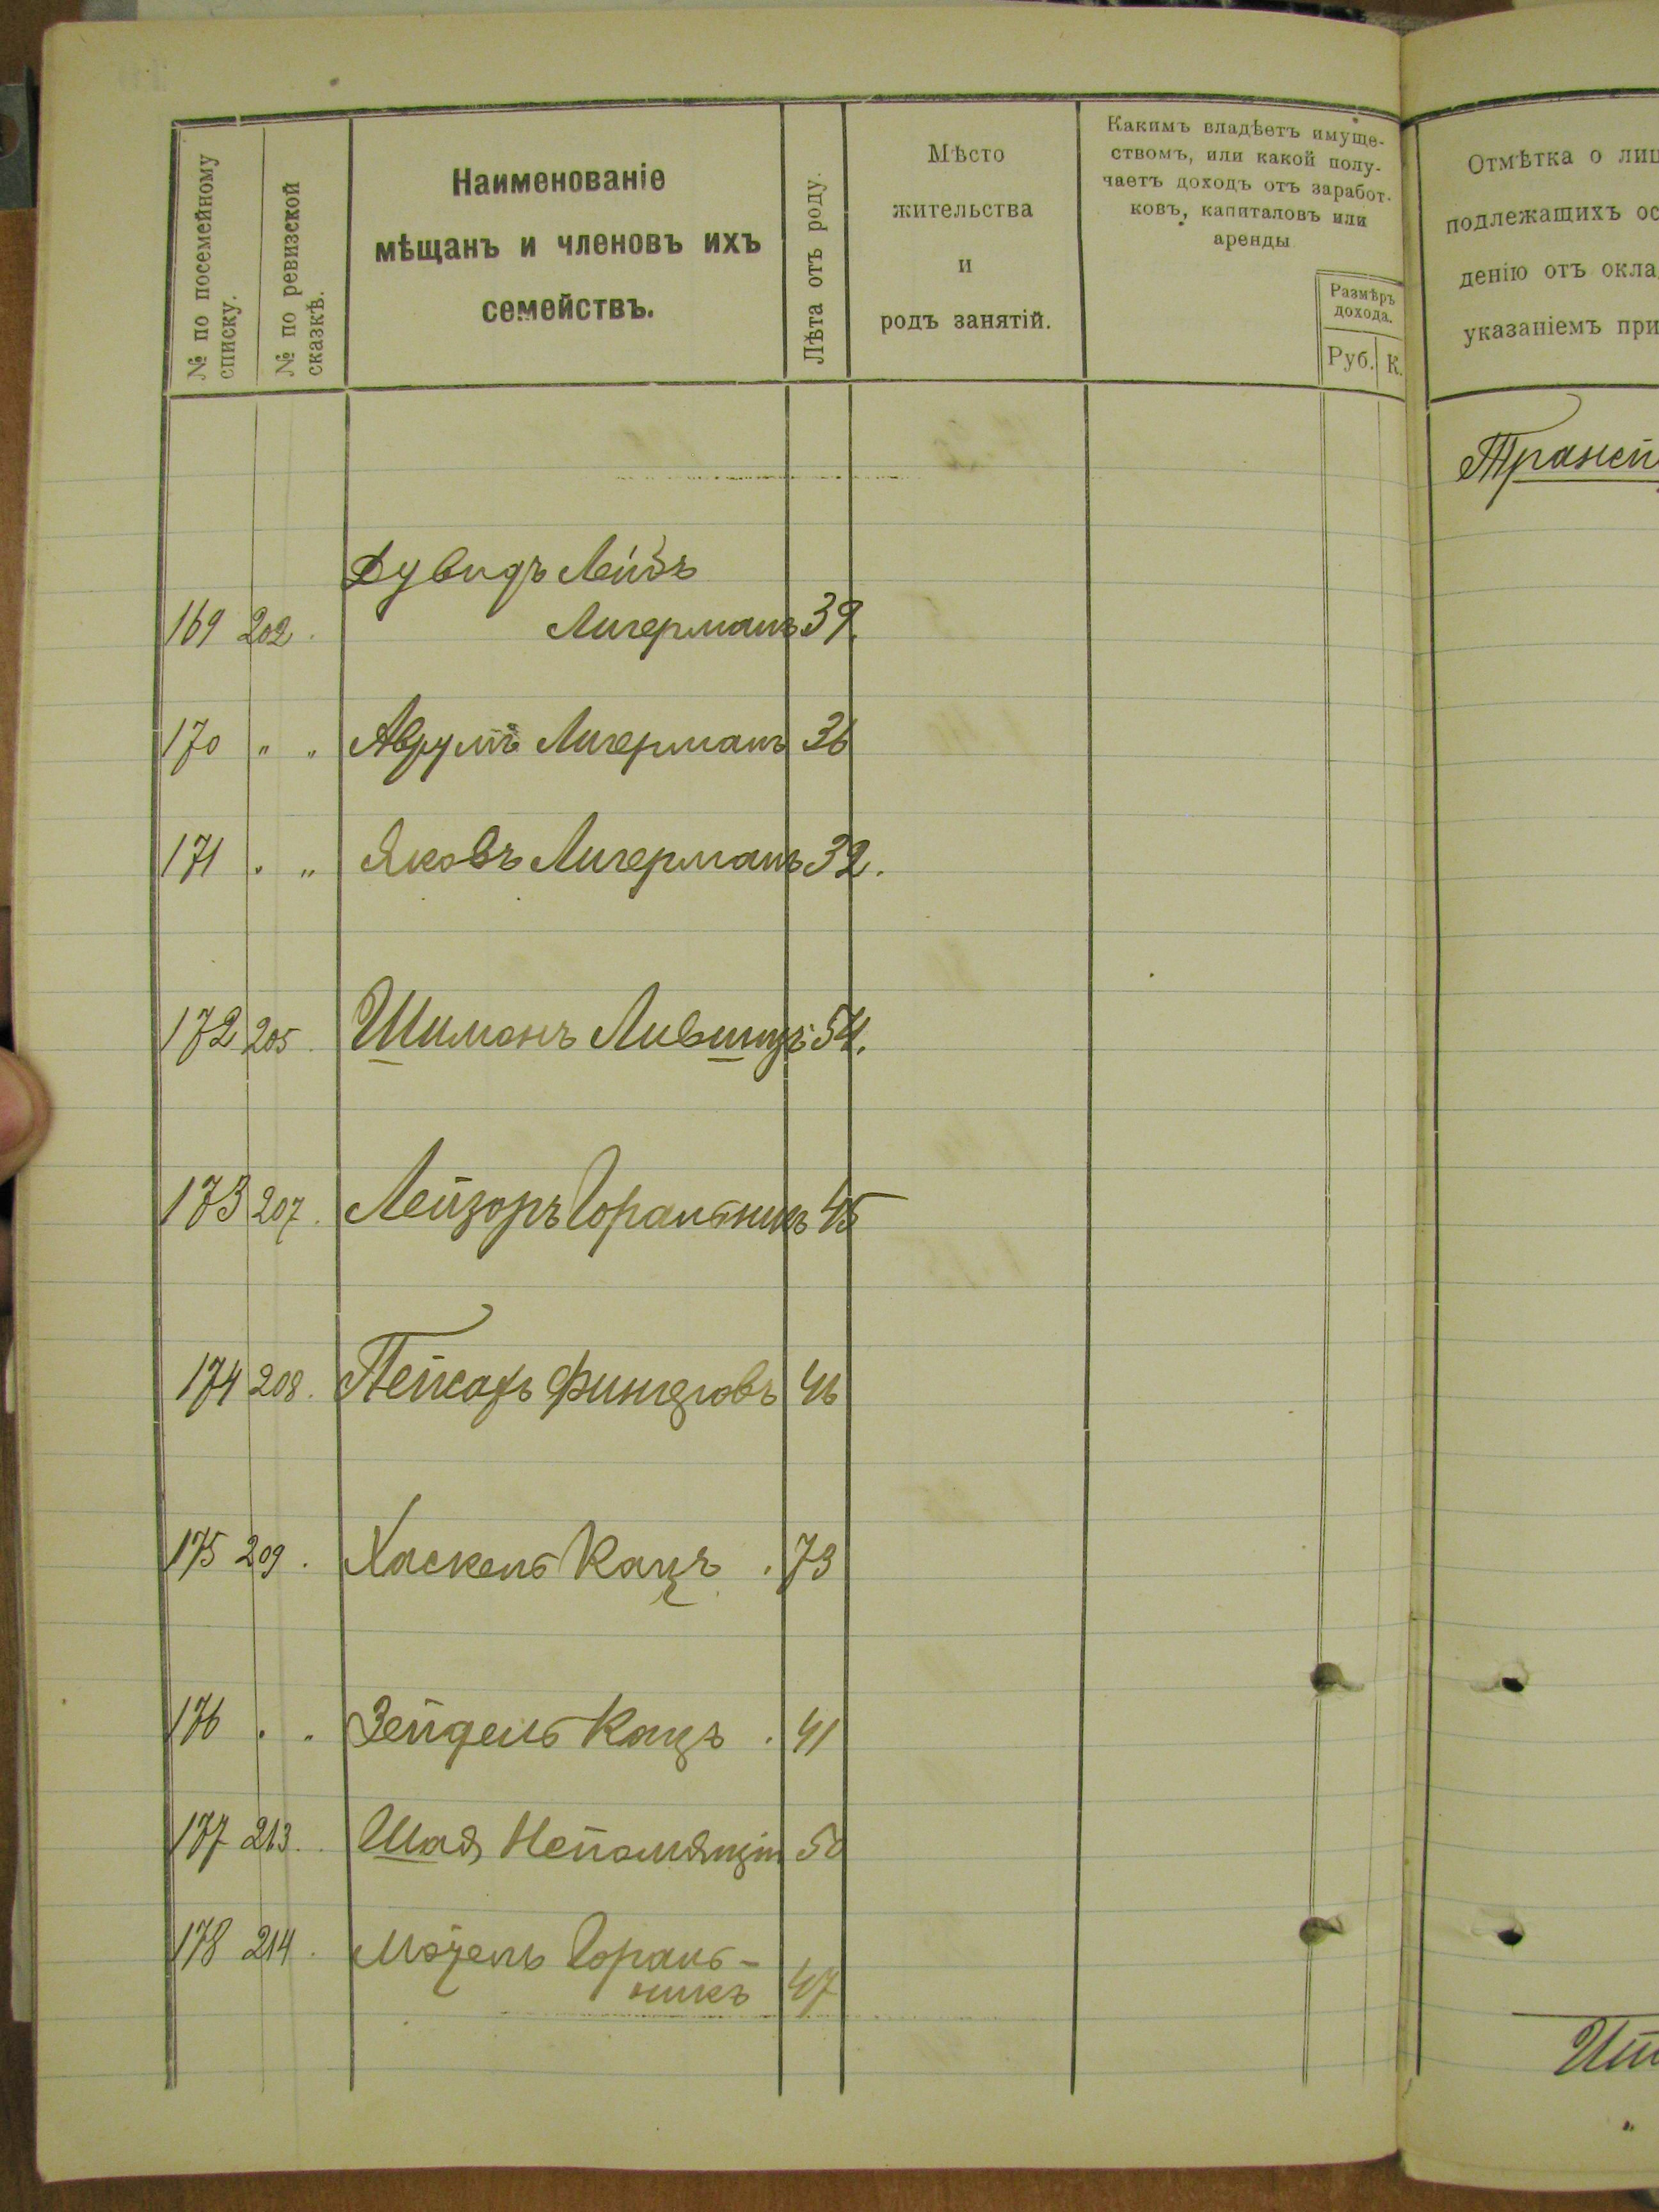 № по посемейному
списку.
№ по ревизской
сказкѣ.
Наименованіе
мѣщанъ и членовъ ихъ
семействъ.
Лѣта отъ роду.
Мѣсто
жительства
и
родъ занятій.
Какимъ владѣетъ имуще-
ствомъ, или какой полу-
чаетъ доходъ отъ заработ-
ковъ, капиталовъ или
аренды
Размѣръ
дохода.
Руб. К.
Отмѣтка о лиц
подлежащихъ ос
денію отъ окла
указаніемъ при
Трансп
Дувидъ Лейбъ
169 202. Лигерманъ 39
170 " " Аврумъ Лигерманъ 36
171 " " Яковъ Лигерманъ 32.
172 205. Шимонъ Лившицъ 54.
173 207. Лейзоръ Горальникъ 45
174 208. Пейсахъ 46
175 209. Хаскель Кацъ. 73
176 " " Зейдель Кацъ. 41
177 213. Шая Непомящій 50
178 214. Мотель Гораль-
никъ 47
Ит
"